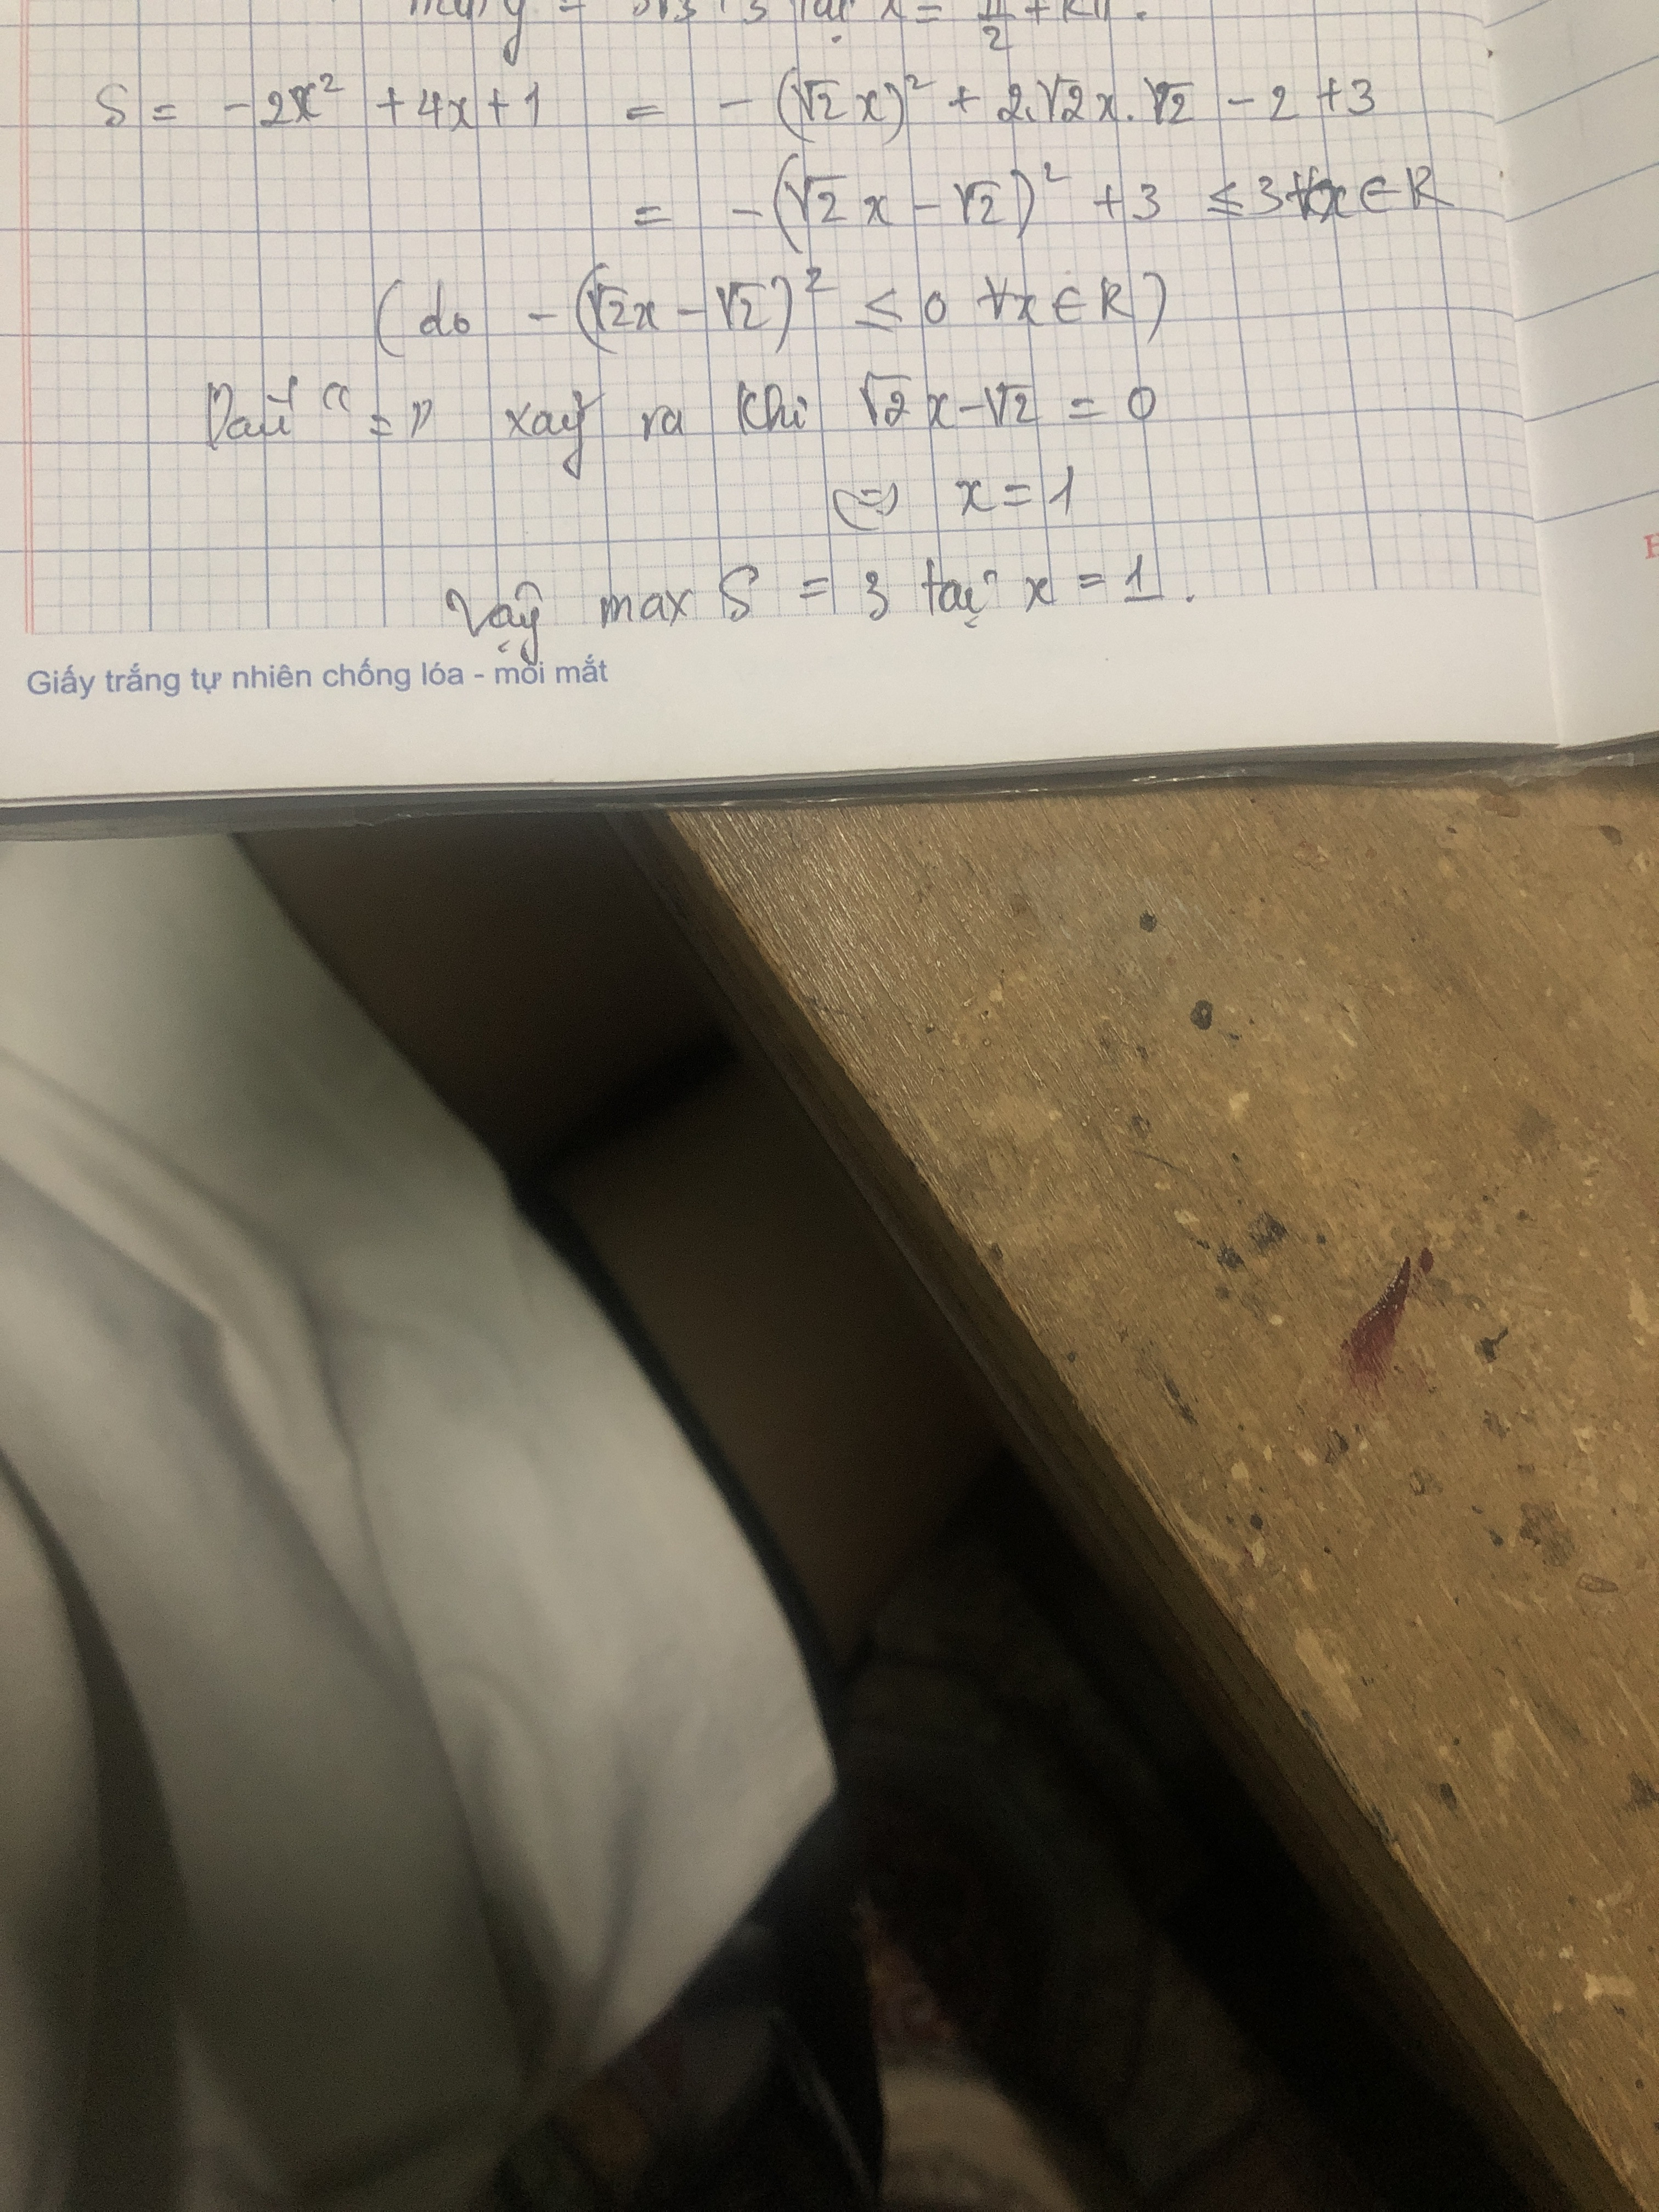 tại x = π/2 + kπ.
S = -2x² + 4x + 1 = -(√2x)² + 2.√2x.√2 - 2 + 3
= -(√2x - √2)² + 3 ≤ 3 ∀x ∈ R
(do -(√2x - √2)² ≤ 0 ∀x ∈ R)
Dấu "=" xảy ra khi √2x - √2 = 0
⇔ x = 1
Vậy max S = 3 tại x = 1.
Giấy trắng tự nhiên chống lóa - mỏi mắt